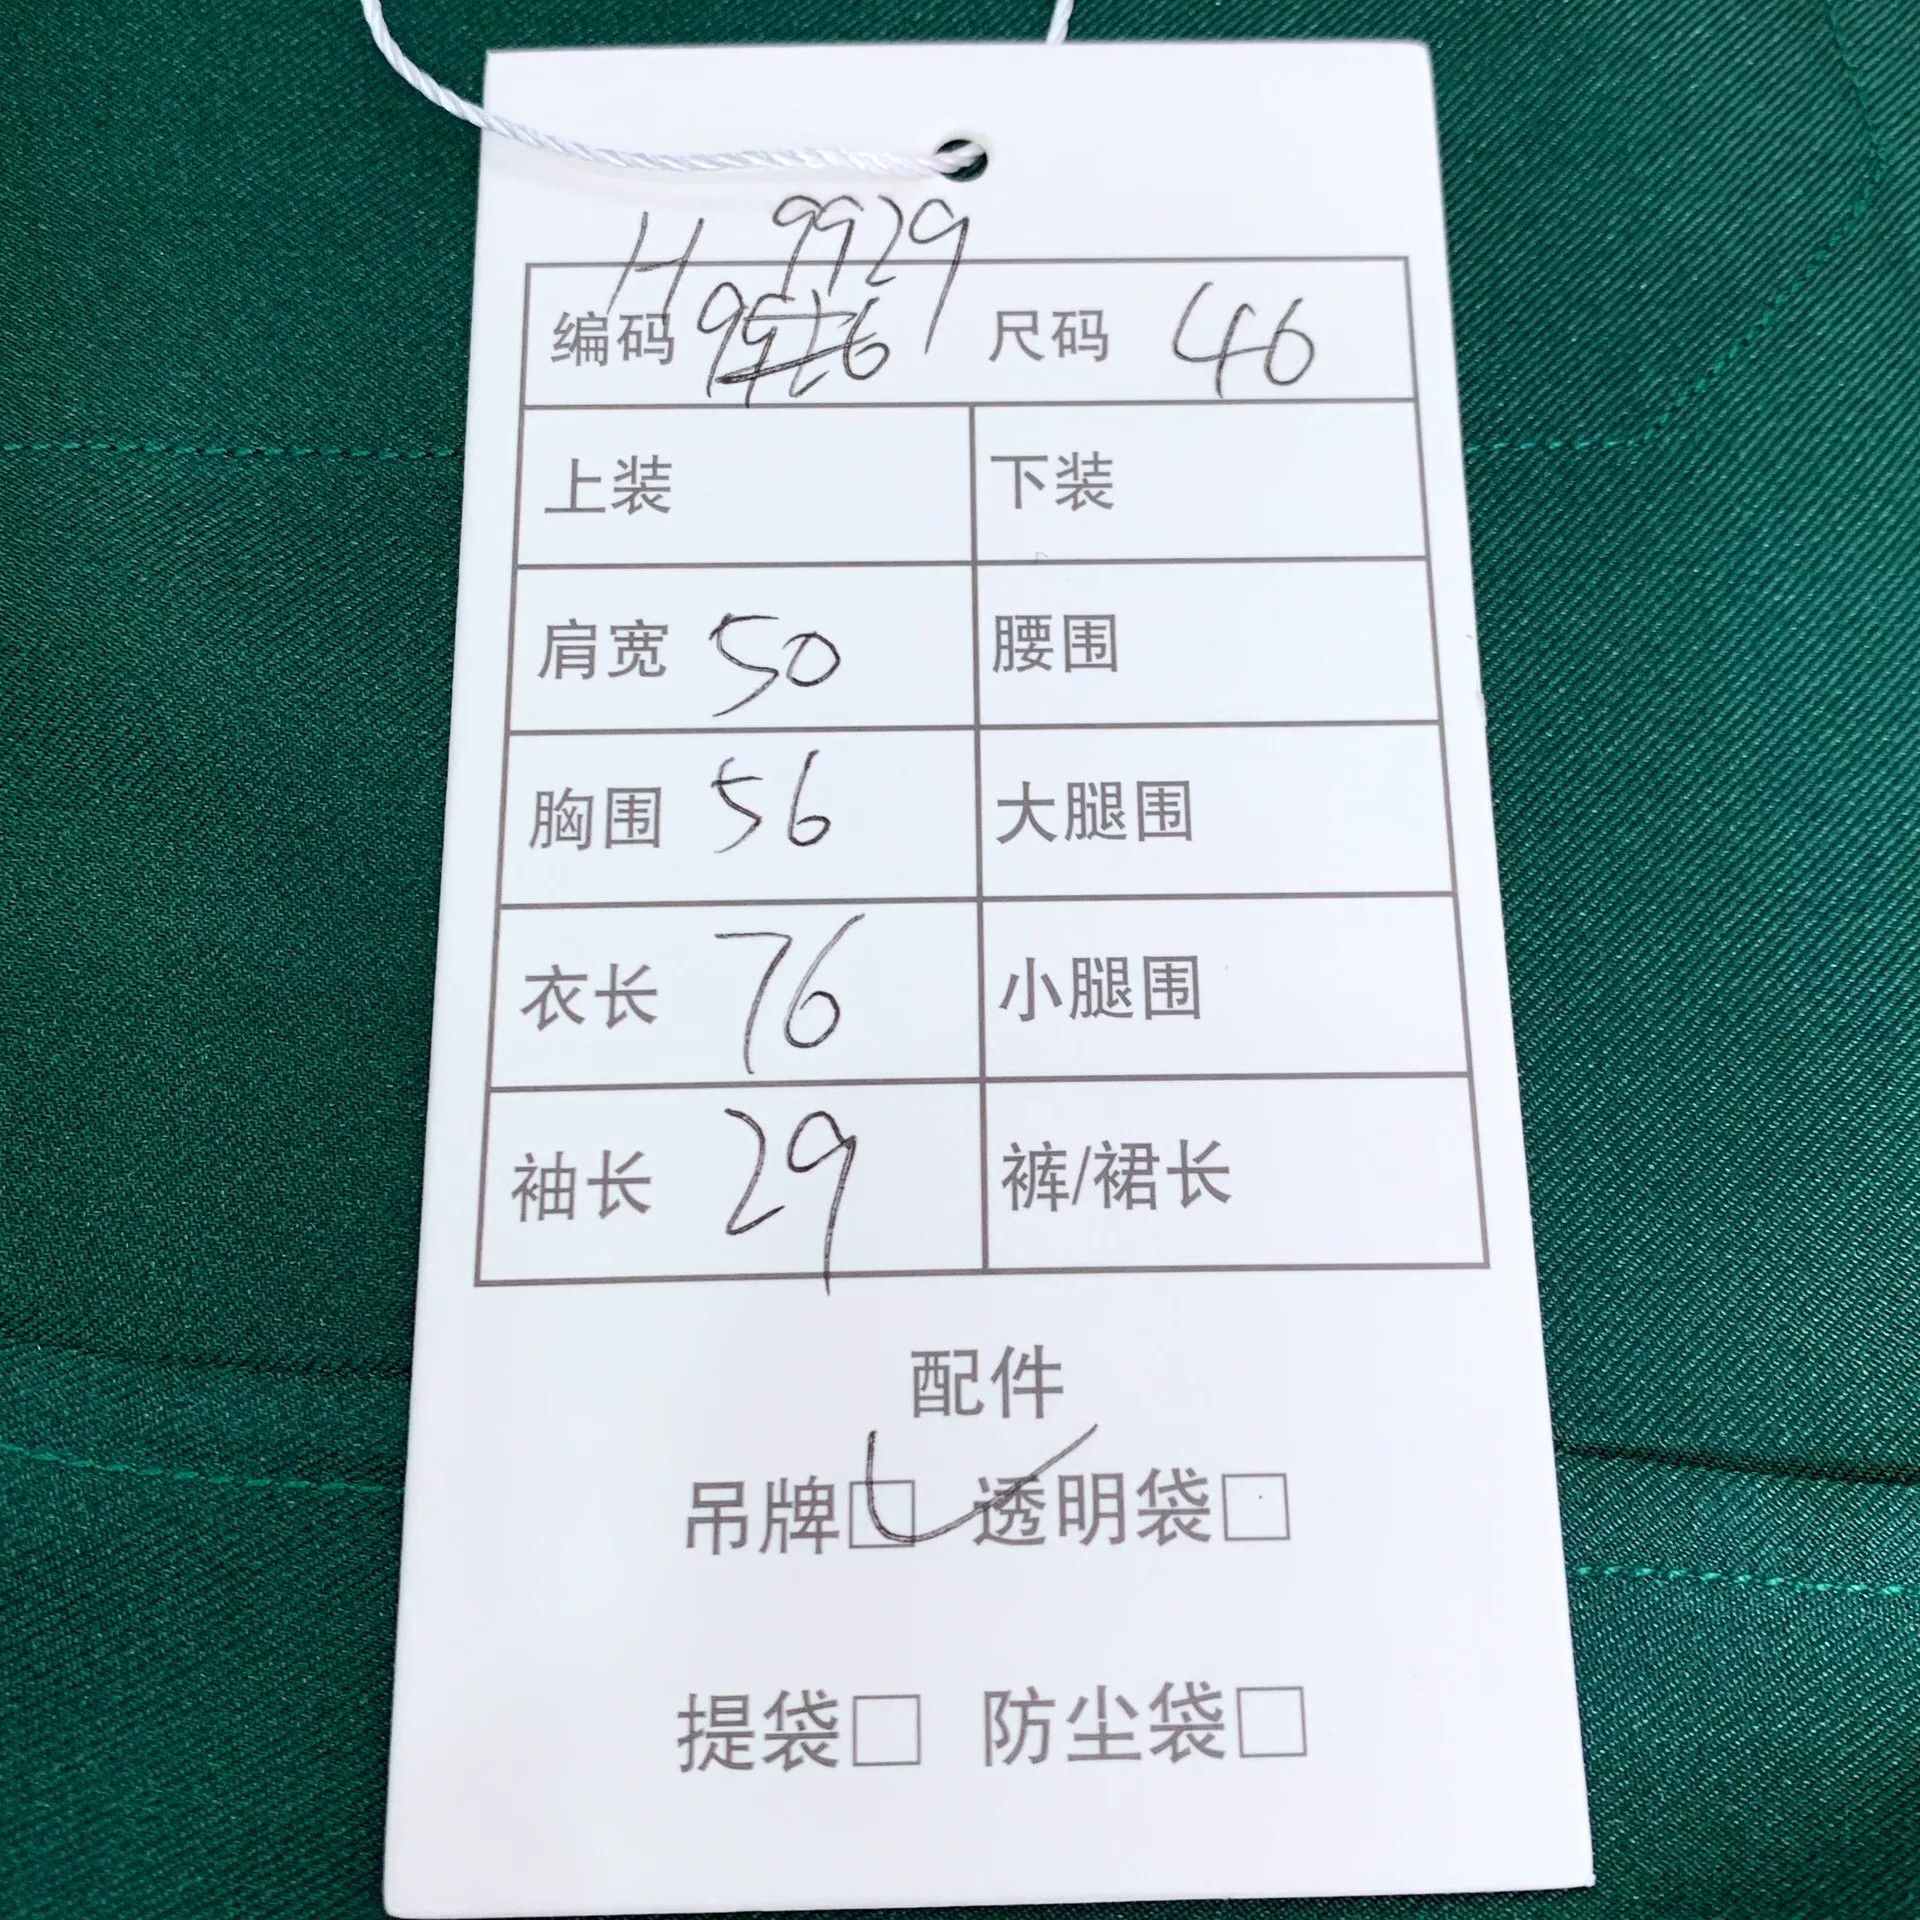 H 9929
编码 尺码 46
上装 下装
肩宽 50 腰围
胸围 56 大腿围
衣长 76 小腿围
袖长 29 裤/裙长
配件
吊牌 透明袋
提袋 防尘袋